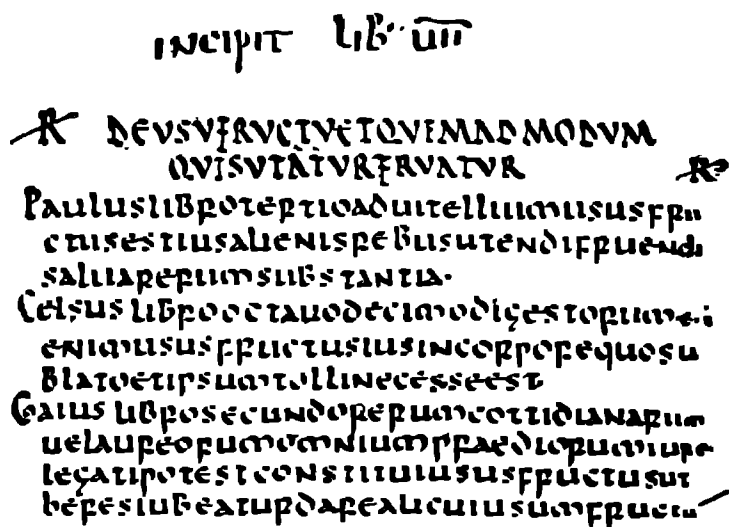 INCIPIT LIB·VII
R DEUSUFRUCTUETQUEMADMODUM
QUISUTATURFRUATUR R
Pauluslibrotertioaduitelliumususfru
ctusestiusalienisrebusutendifruendi
saluarerumsubstantia·
Celsuslibrooctauodecimodigestorumei
enimususfructusiusincorporequosu
blatoetipsumtollinecesseest
Gaiuslibrosecundorerumcottidianarum
uelaureorumomniumpraediorumiure
legatipotestconstituiususfructusut
heresiubeaturdarealicuiusumfructu